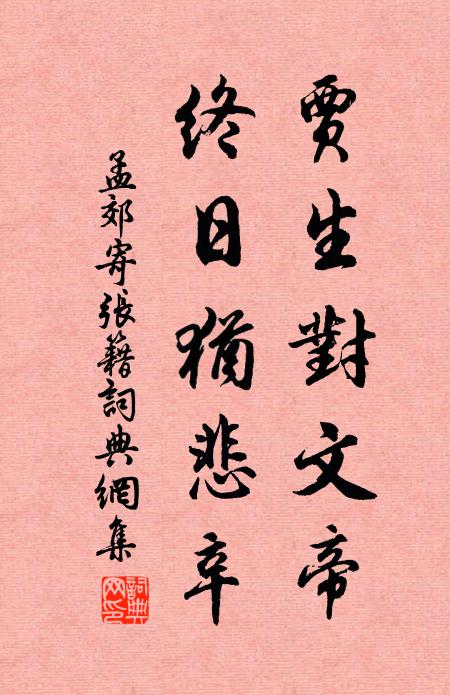 賈生對文帝
終日猶悲辛
孟郊寄張籍詞典網集
詞典網印